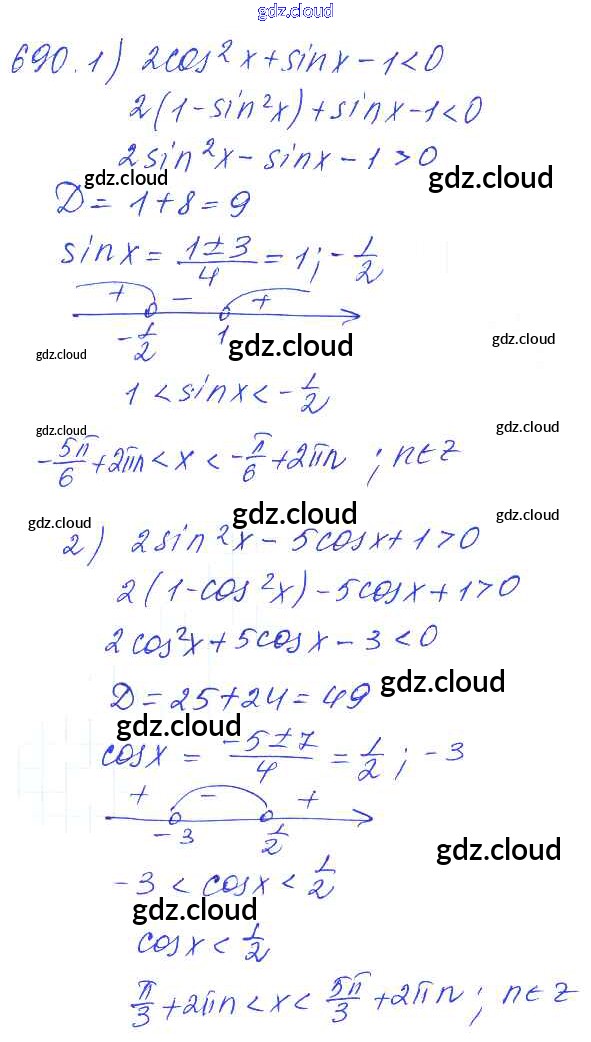 gdz.cloud
690. 1) 2cos²x + sinx - 1 < 0
2(1 - sin²x) + sinx - 1 < 0
2sin²x - sinx - 1 > 0
gdz.cloud gdz.cloud
D = 1 + 8 = 9
sinx = (1 ± 3)/4 = 1; -1/2
+ - +
-1/2 1
gdz.cloud gdz.cloud gdz.cloud
1 < sinx < -1/2
gdz.cloud gdz.cloud
-5π/6 + 2πn < x < -π/6 + 2πn ; n∈z
gdz.cloud gdz.cloud gdz.cloud
2) 2sin²x - 5cosx + 1 > 0
2(1 - cos²x) - 5cosx + 1 > 0
2cos²x + 5cosx - 3 < 0
D = 25 + 24 = 49
gdz.cloud
gdz.cloud
cosx = (-5 ± 7)/4 = 1/2 ; -3
+ - +
-3 1/2
gdz.cloud
-3 < cosx < 1/2
gdz.cloud
cosx < 1/2
π/3 + 2πn < x < 5π/3 + 2πn ; n∈z